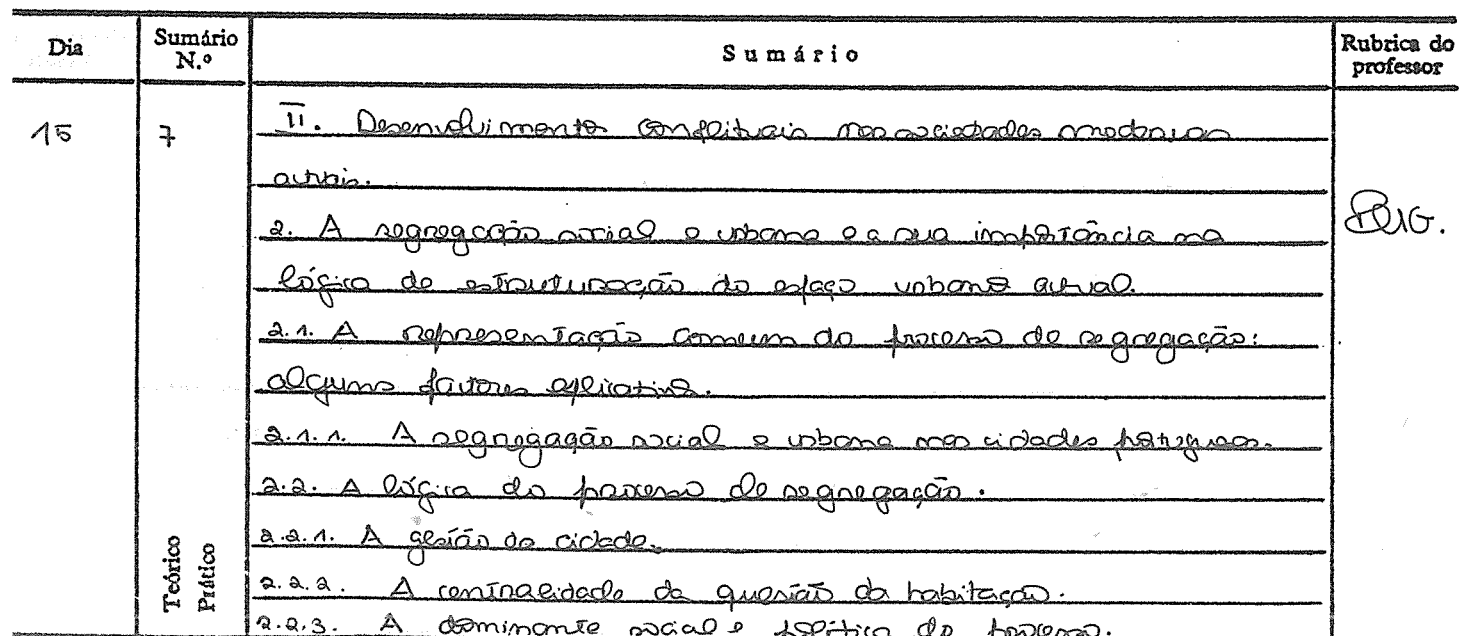 Dia Sumário N.º Sumário Rubrica do professor
15 7 II. Desenvolvimentos conflituais nas sociedades modernas
actuais.
2. A segregação social e urbana e a sua importância na
lógica de estruturação do espaço urbano actual.
2.1. A representação comum do processo de segregação:
alguns factores explicativos.
2.1.1. A segregação social e urbana nas cidades portuguesas.
2.2. A lógica do processo de segregação.
2.2.1. A gestão da cidade.
2.2.2. A centralidade da questão da habitação.
2.2.3. A dominante social e política do processo.
Teórico
Prático